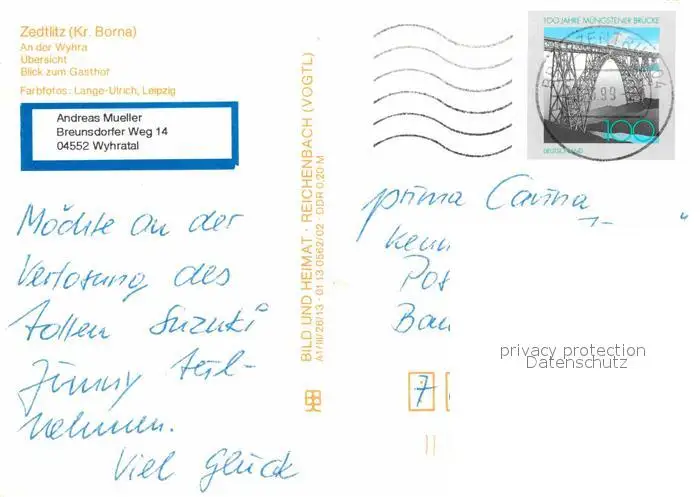 Zedtlitz (Kr. Borna)
An der Wyhra
Übersicht
Blick zum Gasthof
Farbfotos: Lange-Ulrich, Leipzig
Andreas Mueller
Breunsdorfer Weg 14
04552 Wyhratal
Möchte an der
Verlosung des
tollen Suzuki
Jimny teil-
nehmen.
Viel Glück
BILD UND HEIMAT · REICHENBACH (VOGTL)
A1/III/26/13 · 01 13 0562/02 · DDR 0,20 M
100 JAHRE MÜNGSTENER BRÜCKE
100
DEUTSCHLAND
prima Carina
Kenn
Pos
Bau
7
privacy protection
Datenschutz